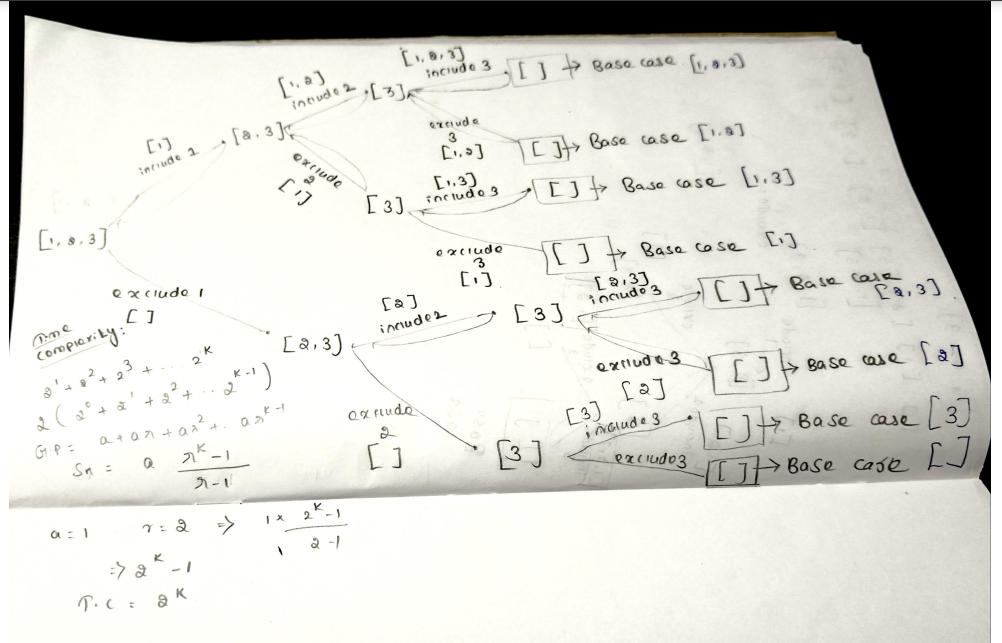 [1,2,3]
include 3
[ ] → Base case [1,2,3]
[1,2]
include 2
[3]
exclude
3
[1,2]
[ ] → Base case [1,2]
[1]
include 1
[2,3]
exclude
2
[1]
[1,3]
include 3
[ ] → Base case [1,3]
[3]
[1,2,3]
exclude
3
[1]
[ ] → Base case [1]
exclude 1
[ ]
[2,3]
include 3
[ ] → Base case
[2,3]
[2]
include 2
[3]
[2,3]
exclude 3
[2]
[ ] → Base case [2]
exclude
2
[ ]
[3]
include 3
[ ] → Base case [3]
[3]
exclude 3
[ ] → Base case [ ]
Time
complexity:
2^1 + 2^2 + 2^3 + ... 2^K
2 (2^0 + 2^1 + 2^2 + .. 2^{K-1})
G.P = a + ar + ar^2 + .. ar^{K-1}
Sn = a (r^K - 1)/(r - 1)
a = 1 r = 2 ⇒ 1 × (2^K - 1)/(2 - 1)
⇒ 2^K - 1
T.C = 2^K